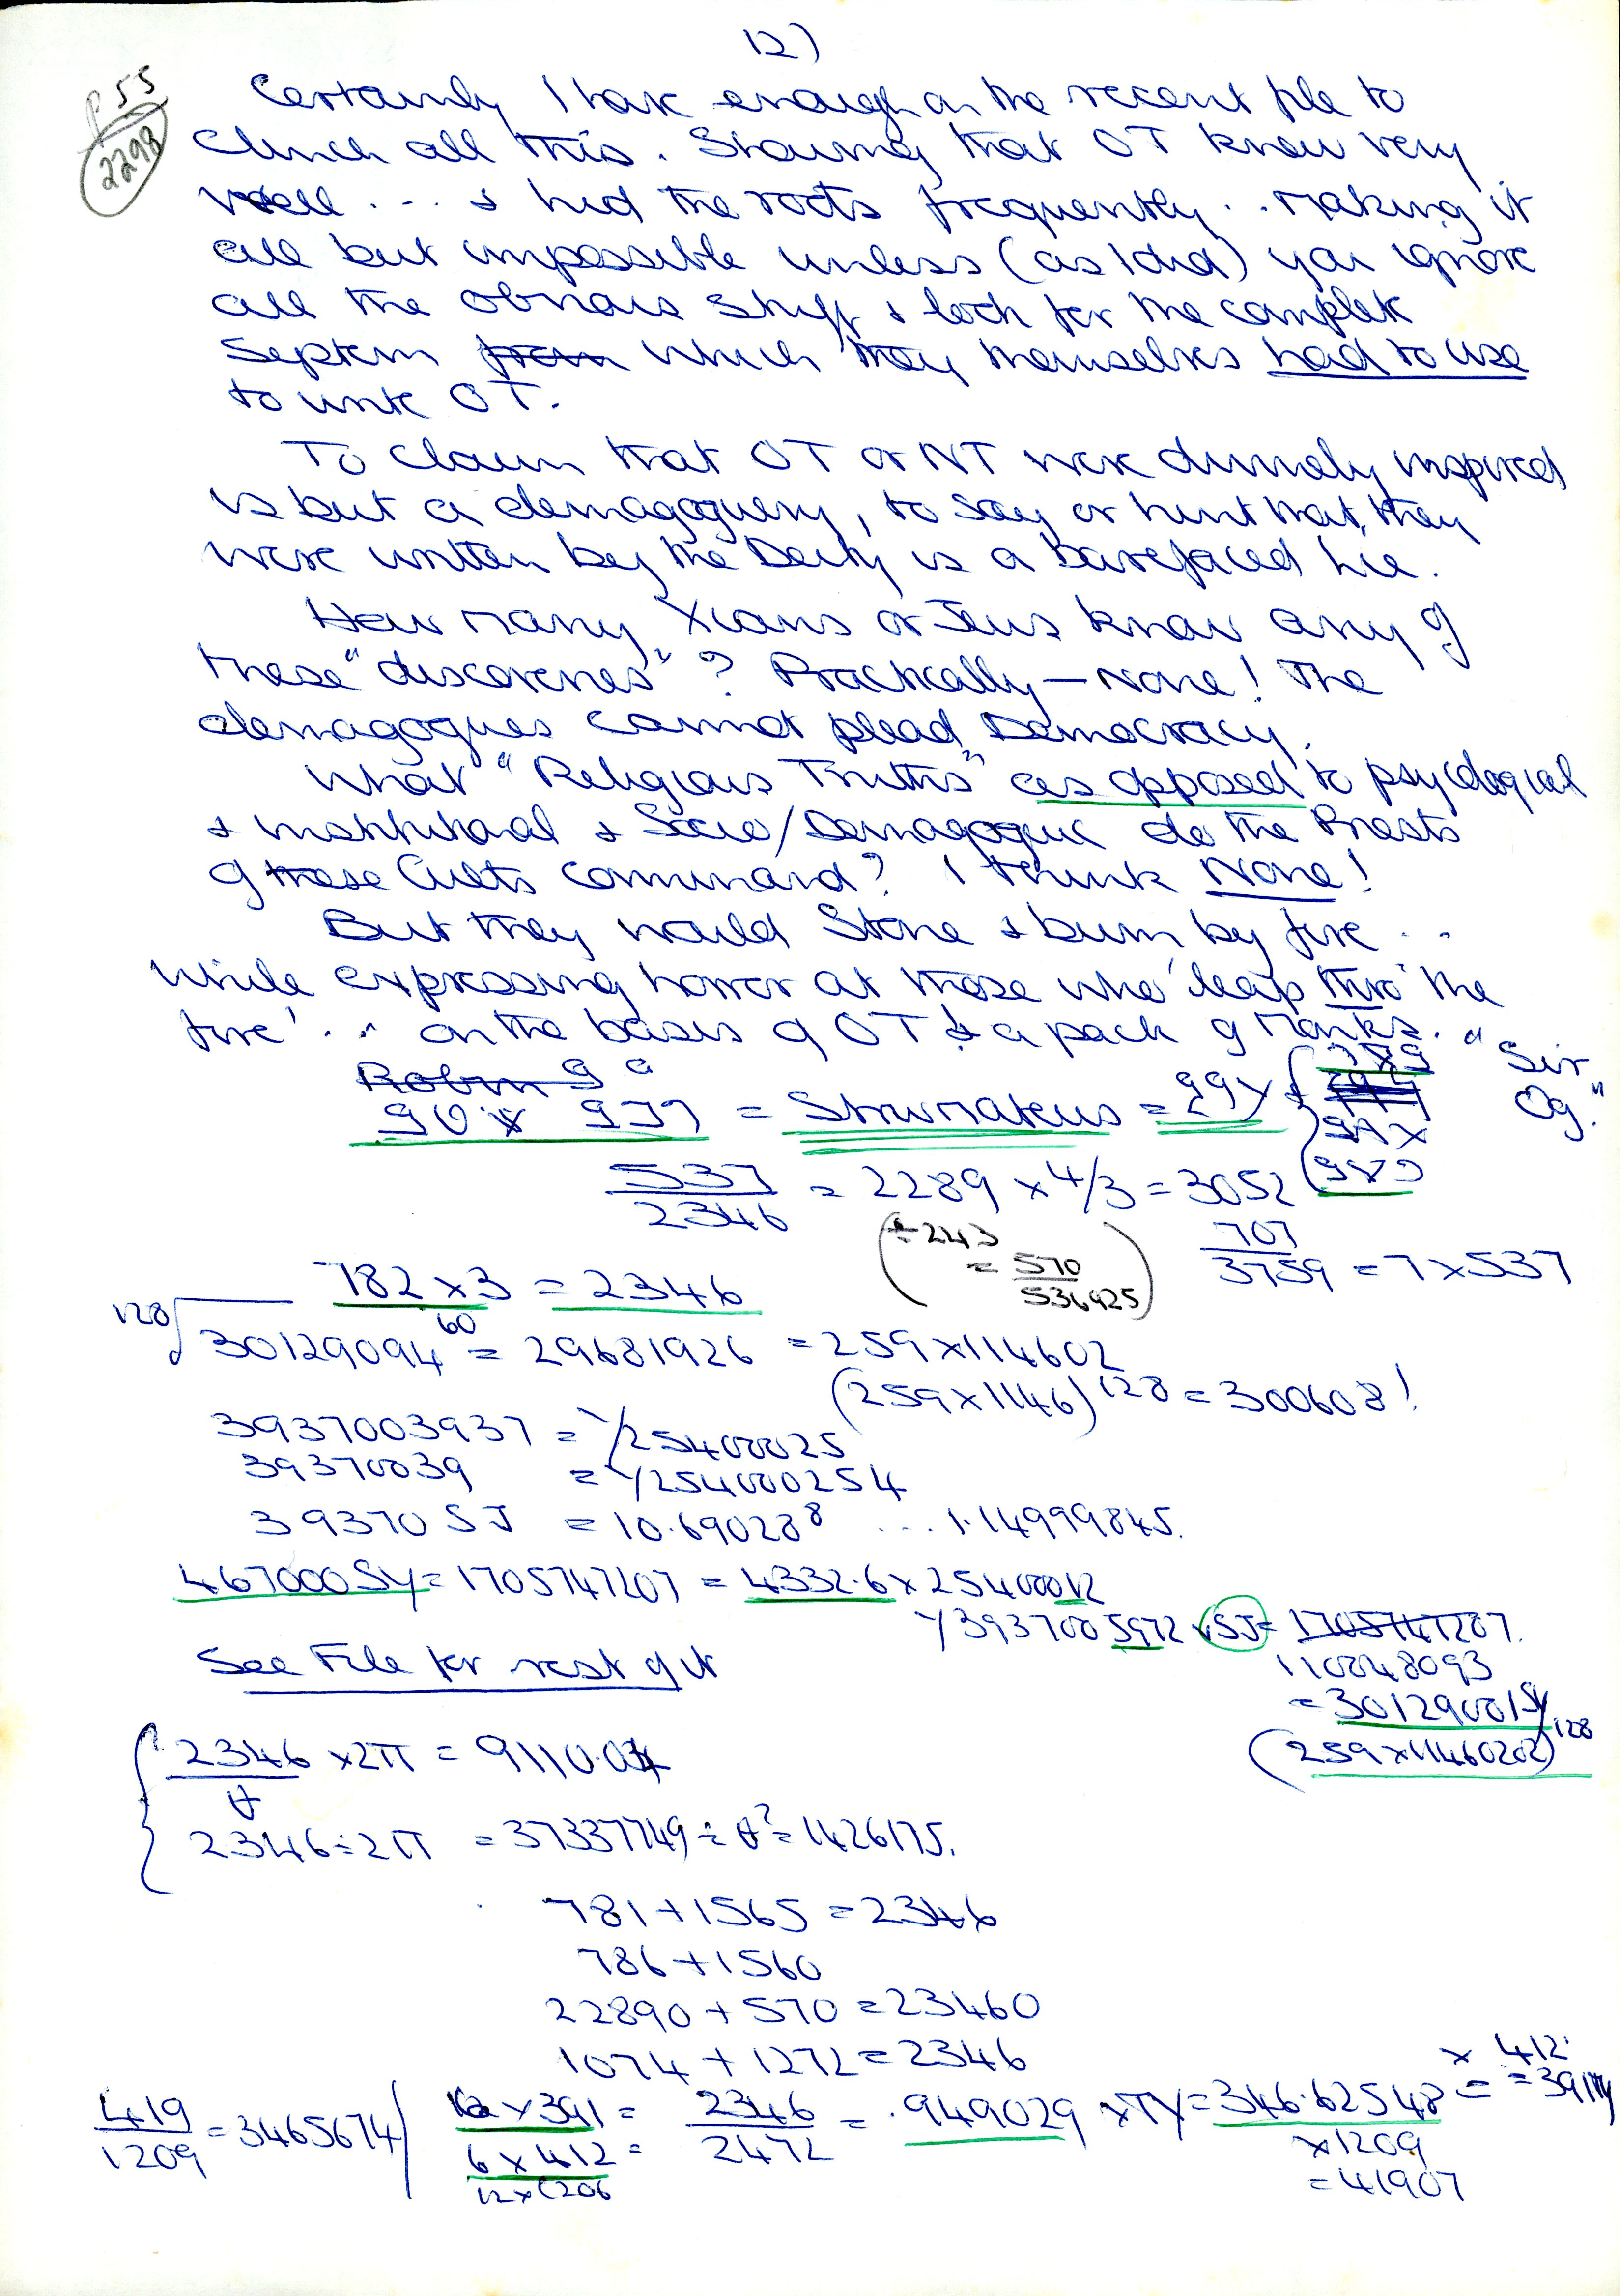 12)
p 55
2298
Certainly I have enough on the recent file to
clinch all this. Showing that OT knew very
well ... & hid the roots frequently .. making it
all but impossible unless (as I did) you ignore
all the obvious stuff & look for the complete
System from which they themselves had to use
to write OT.
To claim that OT or NT were divinely inspired
is but a demagoguery, to say or hint that they
were written by the Deity is a barefaced Lie.
How many Xians or Jews know any of
these "discoveries"? Practically — None! The
demagogues cannot plead Democracy.
What "Religious Truths" as opposed to psycological
& institutional & Socio/Demagogic do the Priests
of these Cults command? I think None!
But they would Stone & burn by fire ..
while expressing horror at those who 'leap thro' the
fire' ... on the basis of OT & a pack of Monks. "Sir
Og."
= =
537/2346 = 2289 x 4/3 = 3052
(÷ 243 = 570/536925)
707/3759 = 7 x 537
782 x 3 = 2346
128√30129094 60 = 29681926 = 259 x 114602
(259 x 1146) 128 = 300608!
3937003937 = 1/25400025
39370039 = 1/254000254
39370 SJ = 10.690288 ... 1.14999845.
467000 SY = 1705747207 = 4332.6 x 25400012
1/3937005972 x SJ = 1705747207.
110048093
= 301290019/128
(259 x 11460202)
See File for rest of it
2346/θ x 2π = 9110.034
2346 ÷ 2π = 37337749 ÷ θ² = 1426175.
781 + 1565 = 2346
786 + 1560
22890 + 570 = 23460
1074 + 1272 = 2346
x 412
419/1209 = 3465674
6 x 391 = 2346
6 x 412 = 2472
12 x 206
= .949029 x TY = 346.62548 =
x 1209
= 41907